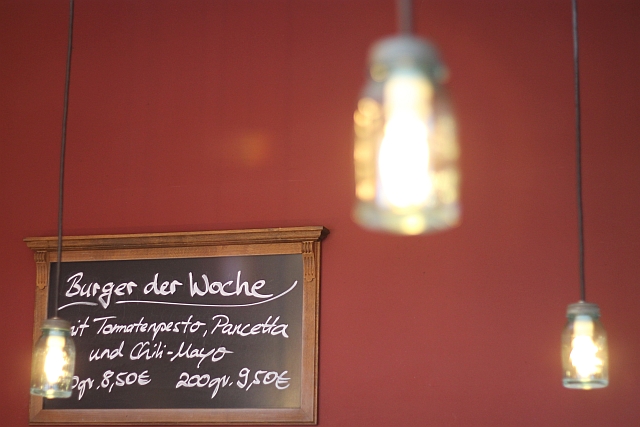 Burger der Woche
mit Tomatenpesto, Pancetta
und Chili-Mayo
gr. 8,50€ 200gr. 9,50€